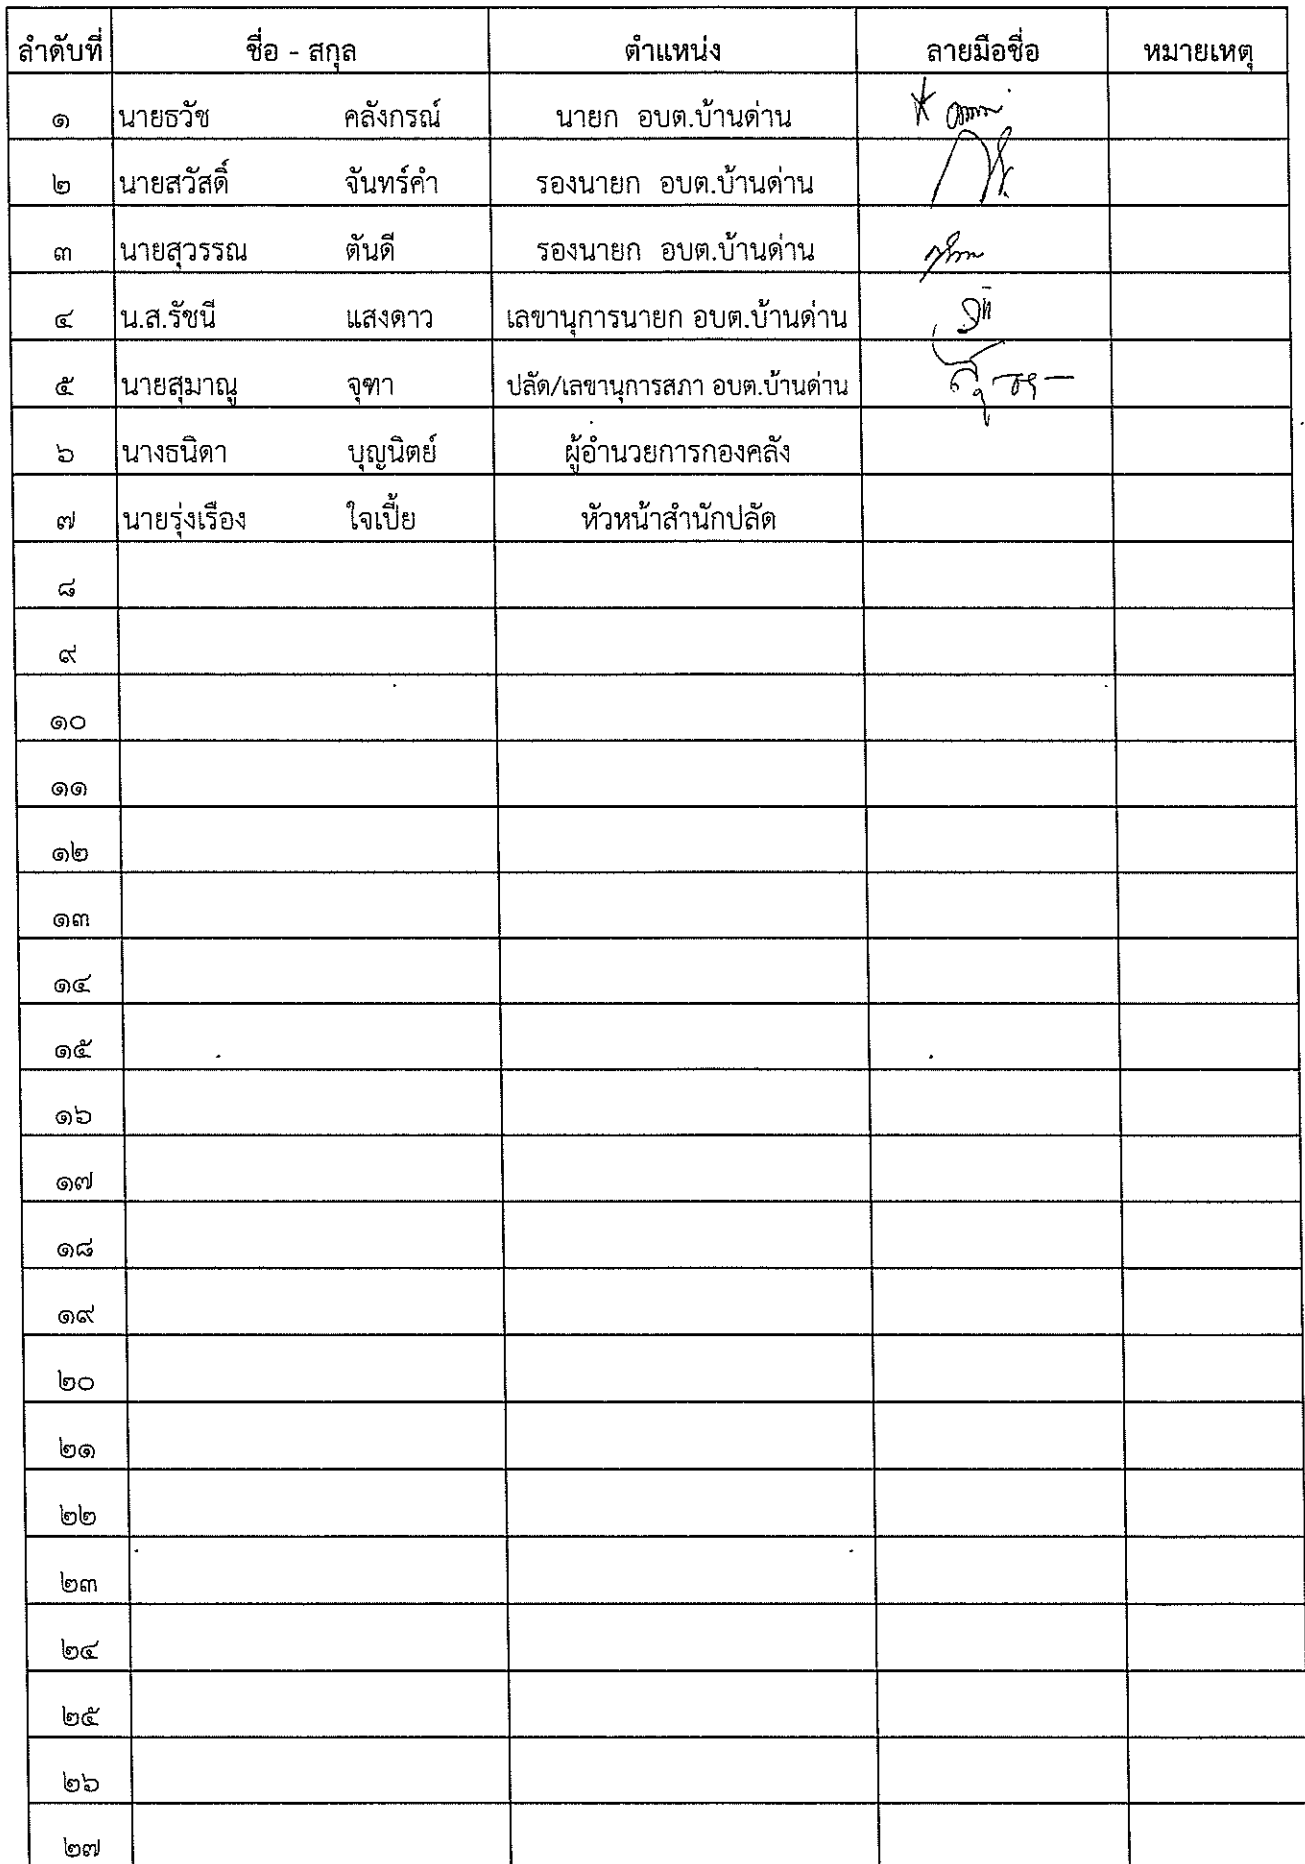 ลำดับที่ ชื่อ - สกุล ตำแหน่ง ลายมือชื่อ หมายเหตุ
๑ นายธวัช คลังกรณ์ นายก อบต.บ้านด่าน
๒ นายสวัสดิ์ จันทร์คำ รองนายก อบต.บ้านด่าน
๓ นายสุวรรณ ตันดี รองนายก อบต.บ้านด่าน
๔ น.ส.รัชนี แสงดาว เลขานุการนายก อบต.บ้านด่าน
๕ นายสุมาณู จุฑา ปลัด/เลขานุการสภา อบต.บ้านด่าน
๖ นางธนิดา บุญนิตย์ ผู้อำนวยการกองคลัง
๗ นายรุ่งเรือง ใจเปี้ย หัวหน้าสำนักปลัด
๘
๙
๑๐
๑๑
๑๒
๑๓
๑๔
๑๕
๑๖
๑๗
๑๘
๑๙
๒๐
๒๑
๒๒
๒๓
๒๔
๒๕
๒๖
๒๗